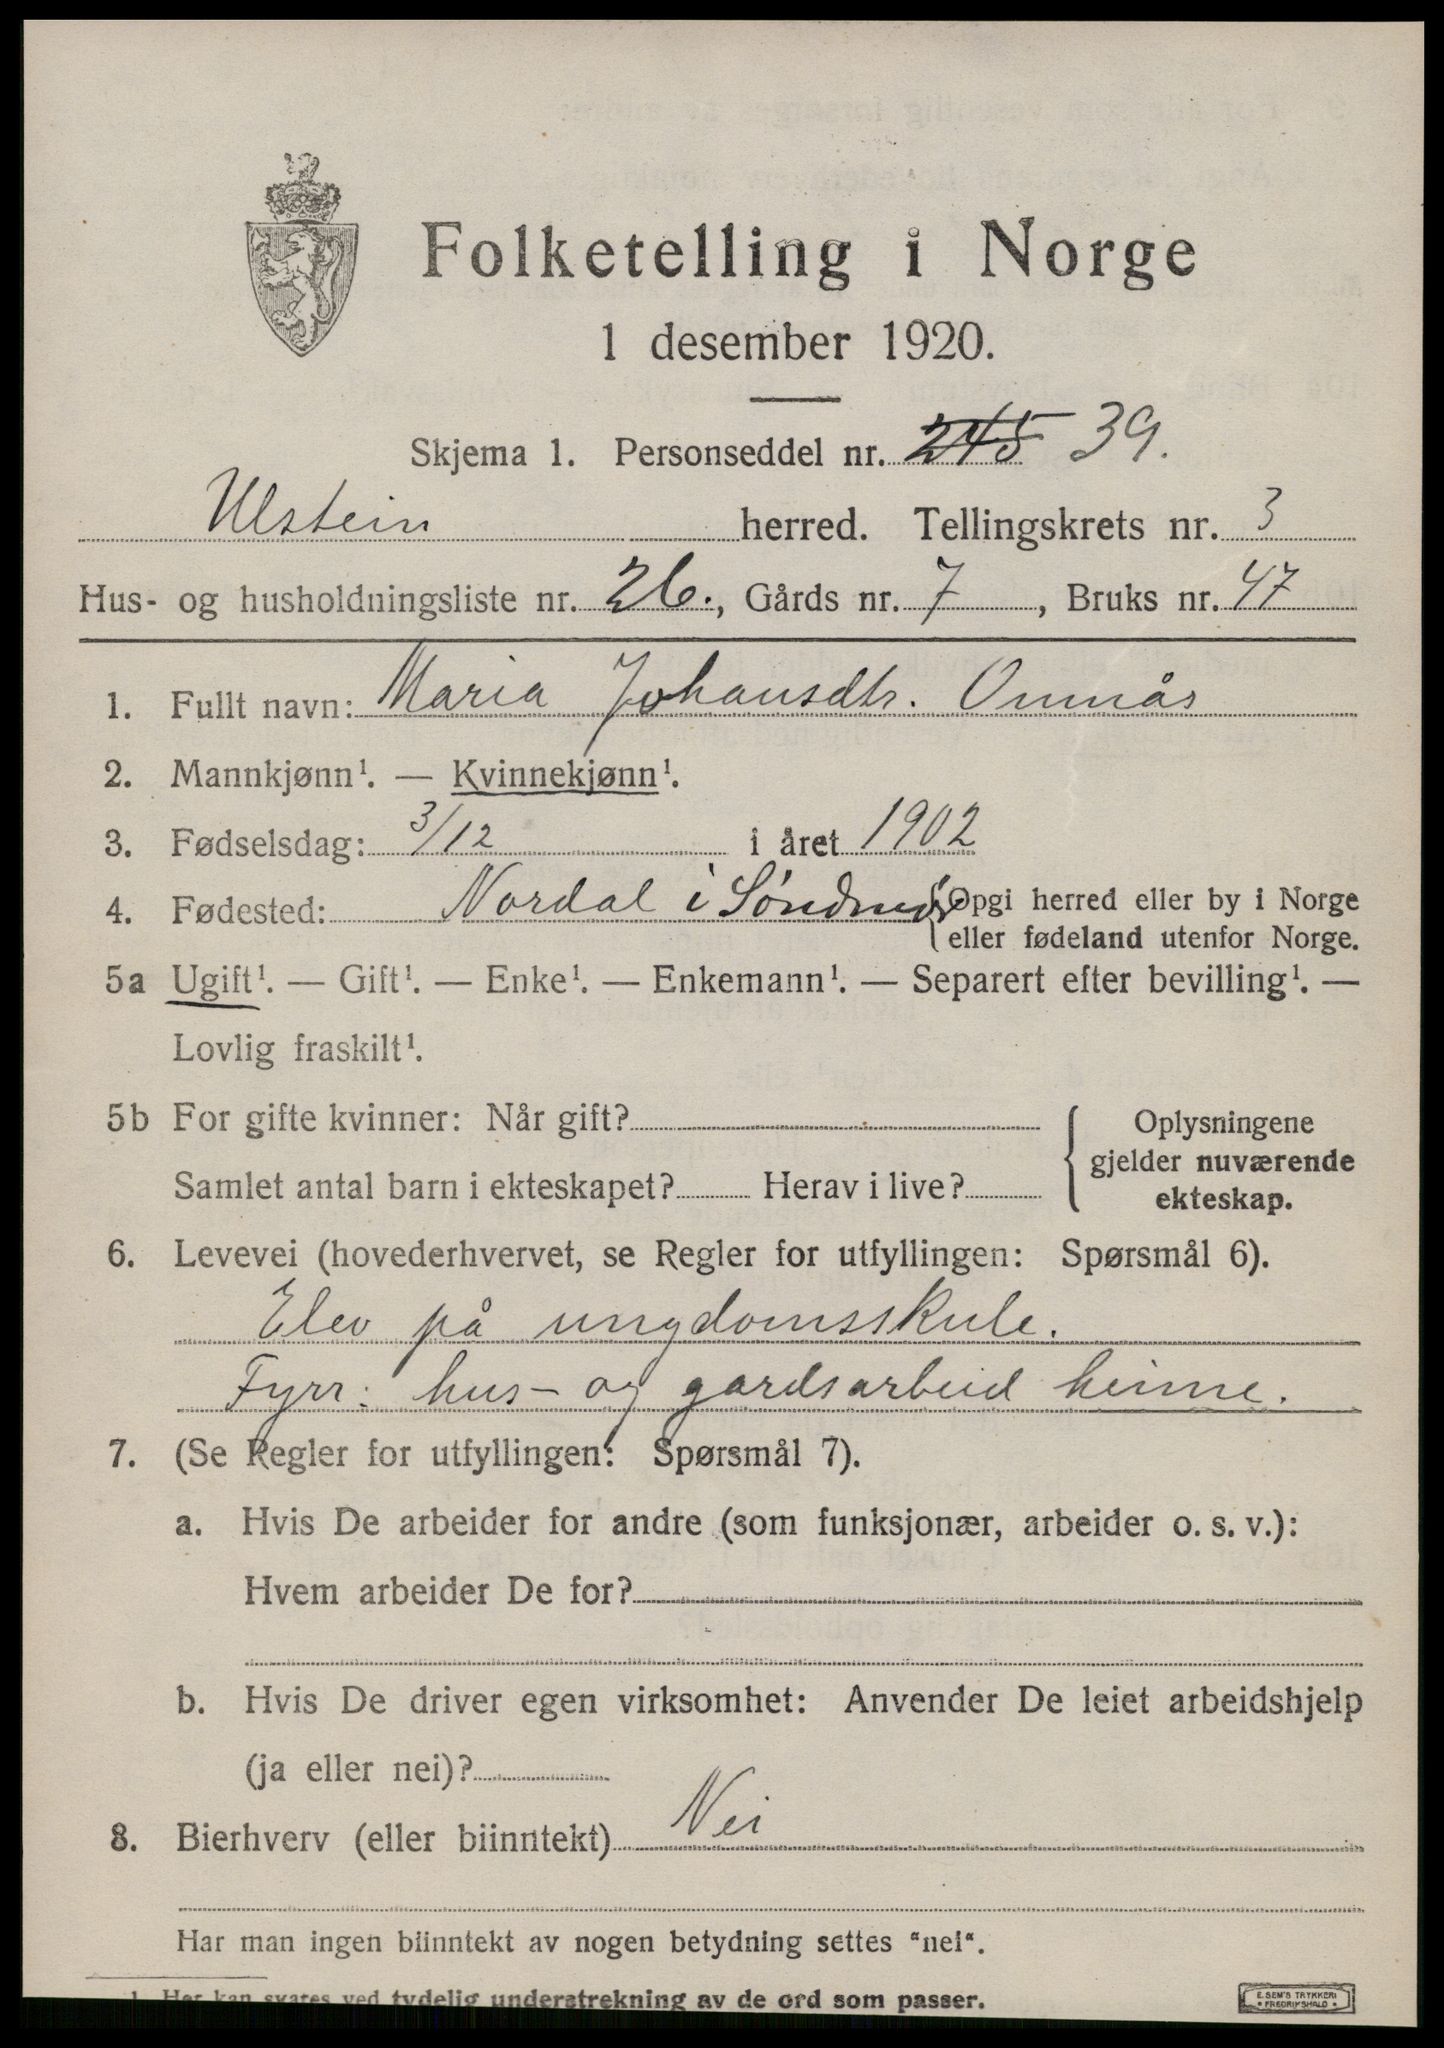 Folketelling i Norge
1 desember 1920.
Skjema 1. Personseddel nr. 245 39.
Ulstein herred. Tellingskrets nr. 3
Hus- og husholdningsliste nr. 26., Gårds nr. 7, Bruks nr. 47
1. Fullt navn: Maria Johansdtr. Omnås
2. Mannkjønn¹. — Kvinnekjønn¹.
3. Fødselsdag: 3/12 i året 1902
4. Fødested: Nordal i Søndmør {Opgi herred eller by i Norge
eller fødeland utenfor Norge.
5a Ugift¹. — Gift¹. — Enke¹. — Enkemann¹. — Separert efter bevilling¹. —
Lovlig fraskilt¹.
5b For gifte kvinner: Når gift?
Samlet antal barn i ekteskapet? Herav i live?
{ Oplysningene
gjelder nuværende
ekteskap.
6. Levevei (hovederhvervet, se Regler for utfyllingen: Spørsmål 6).
Elev på ungdomsskule.
Fyrr: hus- og gardsarbeid heime.
7. (Se Regler for utfyllingen: Spørsmål 7).
a. Hvis De arbeider for andre (som funksjonær, arbeider o. s. v.):
Hvem arbeider De for?
b. Hvis De driver egen virksomhet: Anvender De leiet arbeidshjelp
(ja eller nei)?
8. Bierhverv (eller biinntekt) Nei
Har man ingen biinntekt av nogen betydning settes "nei".
1 Her kan svares ved tydelig understrekning av de ord som passer.
E. SEM'S TRYKKERI
• FREDRIKSHALD •